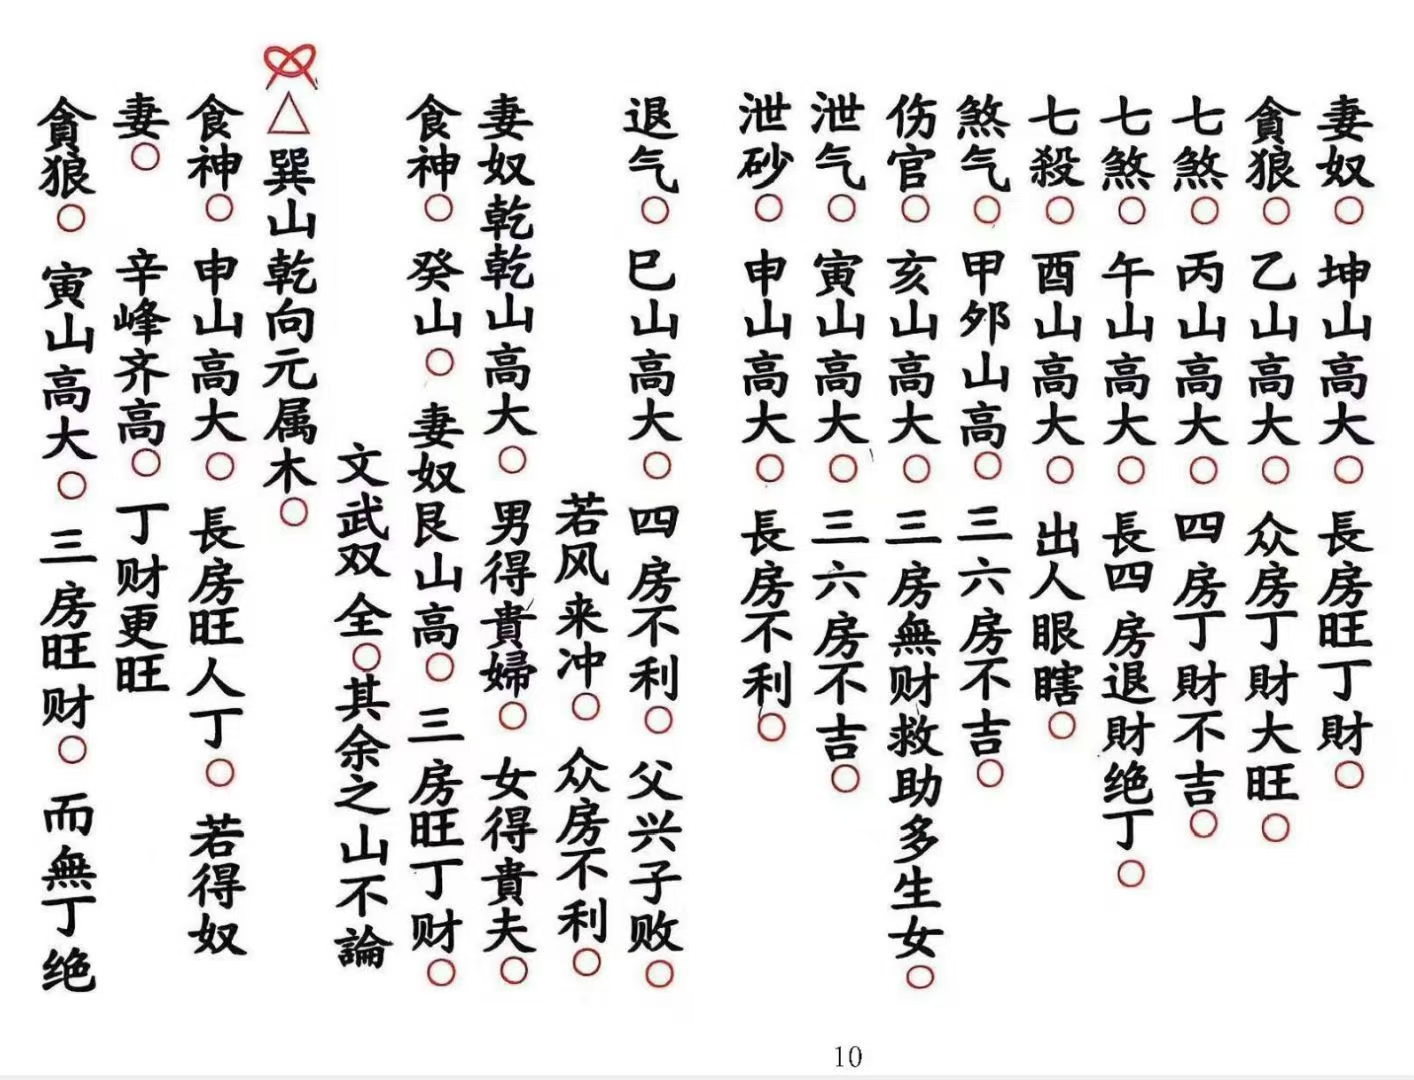 妻奴○坤山高大○長房旺丁財○
貪狼○乙山高大○众房丁財大旺○
七煞○丙山高大○四房丁財不吉○
七煞○午山高大○長四房退財绝丁○
七殺○酉山高大○出人眼瞎○
煞气○甲夘山高○三六房不吉○
伤官○亥山高大○三房無财救助多生女○
泄气○寅山高大○三六房不吉○
泄砂○申山高大○長房不利○
退气○巳山高大○四房不利○父兴子败○
若风来冲○众房不利○
妻奴乾乾山高大○男得貴婦○女得貴夫○
食神○癸山○妻奴艮山高○三房旺丁财○
文武双全○其余之山不論
△巽山乾向元属木○
食神○申山高大○長房旺人丁○若得奴
妻○辛峰齐高○丁财更旺
貪狼○寅山高大○三房旺财○而無丁绝
10